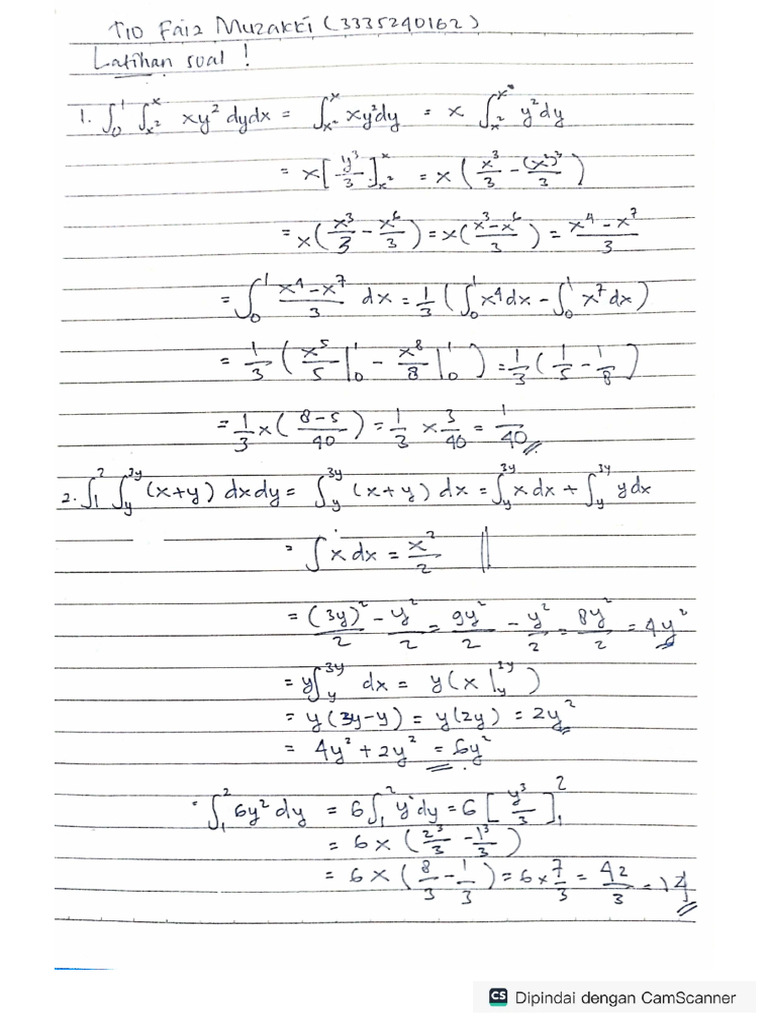 TIO Faiz Muzakki (3335240162)
Latihan soal !
1. ∫₀¹ ∫ₓ²ˣ xy² dydx = ∫ₓ²ˣ xy²dy = x ∫ₓ²ˣ y²dy
= x[y³/3]ₓ²ˣ = x (x³/3 - (x²)³/3)
= x(x³/3 - x⁶/3) = x(x³-x⁶/3) = x⁴-x⁷/3
= ∫₀¹ x⁴-x⁷/3 dx = 1/3 (∫₀¹ x⁴dx - ∫₀¹ x⁷dx)
= 1/3 (x⁵/5 |₀¹ - x⁸/8 |₀¹) = 1/3 (1/5 - 1/8)
= 1/3 x (8-5/40) = 1/3 x 3/40 = 1/40
2. ∫₁² ∫ᵧ³ʸ (x+y) dxdy = ∫ᵧ³ʸ (x+y) dx = ∫ᵧ³ʸ x dx + ∫ᵧ³ʸ y dx
= ∫ x dx = x²/2 ||
= (3y)²/2 - y²/2 = 9y²/2 - y²/2 = 8y²/2 = 4y²
= y∫ᵧ³ʸ dx = y(x |ᵧ³ʸ)
= y(3y-y) = y(2y) = 2y²
= 4y² + 2y² = 6y²
∫₁² 6y² dy = 6∫₁² y² dy = 6 [y³/3]₁²
= 6 x (2³/3 - 1³/3)
= 6 x (8/3 - 1/3) = 6 x 7/3 = 42/3 = 14
CS Dipindai dengan CamScanner